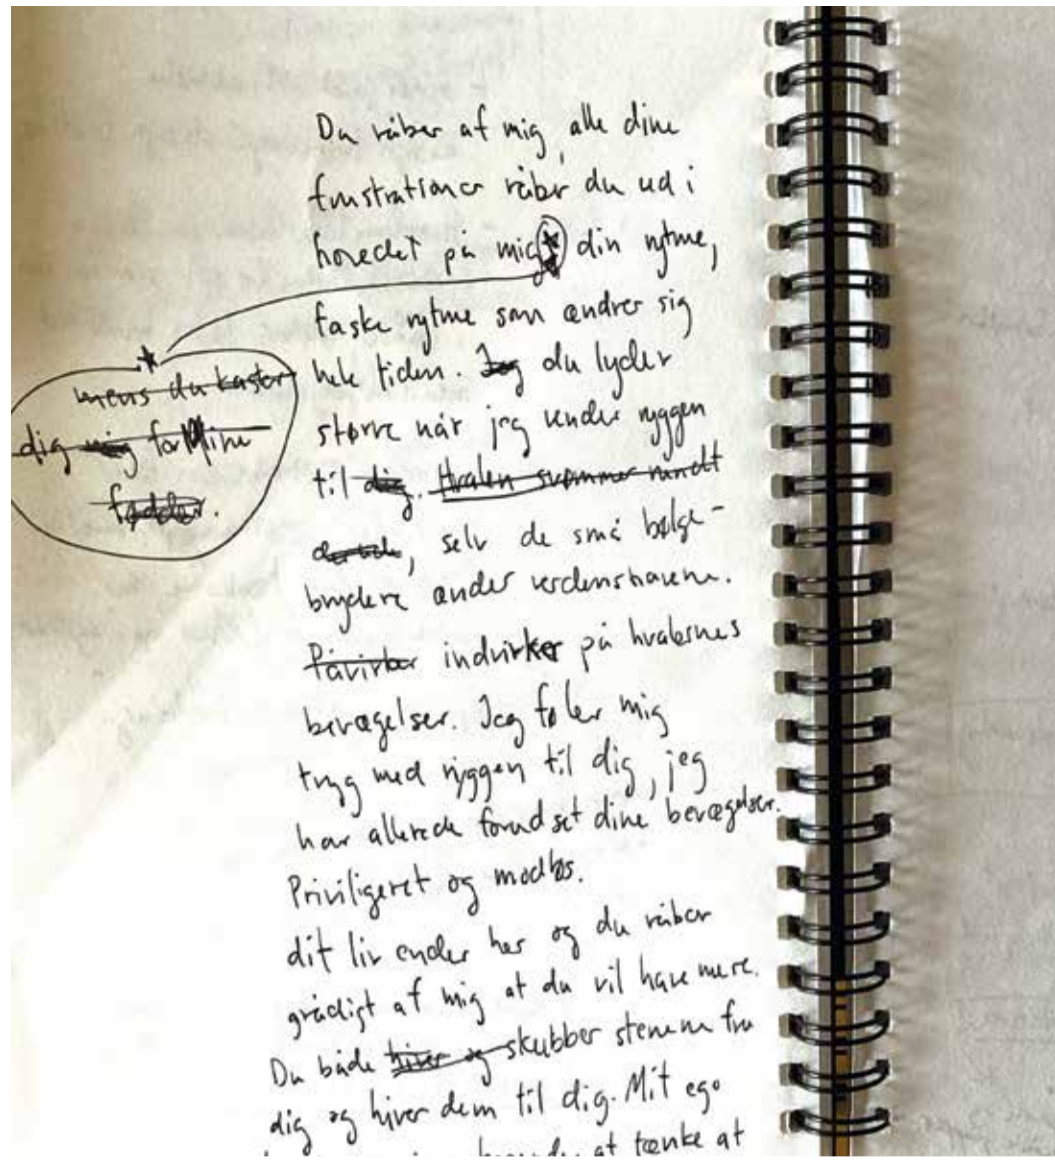 Du råber af mig, alle dine
frustrationer råber du ud i
hovedet på mig* din rytme,
faske rytme som ændrer sig
*
mens du kaster
dig mig for mine
fødder.
hele tiden. Jeg du lyder
større når jeg vender ryggen
til dig. Hvalen svømmer rundt
, selv de små bølge-
brydere ænder verdenshavene.
Påvirker indvirker på hvalernes
bevægelser. Jeg føler mig
tryg med ryggen til dig, jeg
har allerede forudset dine bevægelser.
Priviligeret og modløs.
dit liv ender her og du råber
grådigt af mig at du vil have mere.
Du både hiver og skubber stenene fra
dig og hiver dem til dig. Mit ego
at tænke at